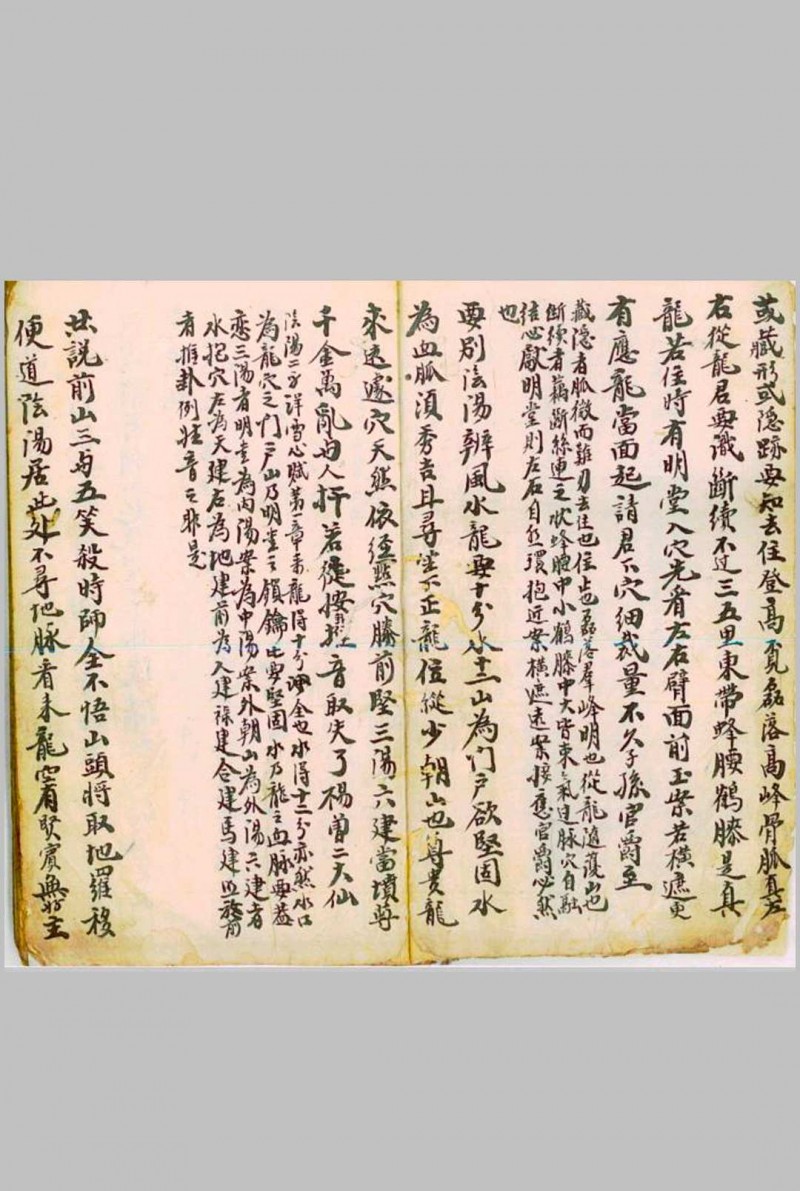 或藏形或隱跡要知去住登高覓磊落高峰骨脈真左
右從龍君要識斷續不过三五里束帶蜂腰鶴膝是真
龍若住時有明堂入穴先看左右臂面前玉案若橫遮更
有應龍當面起請君下穴細裁量不久子孫官爵至
藏隱者脈微而難別去住也住步也磊落羣峰明也從龍隨護山也
斷續者藕斷絲連之狀蜂腰中小鶴膝中大皆束氣过脈穴自融
結必獻明堂則左右自然環抱近案橫遮遠案接應官爵必然
也
要別陰陽辨風水龍要十分水十二山為门戶欲堅固水
為血脈須秀吉且尋坐下正龍位從少朝山也尊貴龍
來遠邃穴天然依徑點穴勝前賢三陽六建當墳尊
千金萬亂与人扦若從按音取失了楊曾二大仙
陰陽二分詳雪心賦第一章来龍得十分平全也水得十二分亦然水口
為龍穴之門戶山乃明堂之鎖鑰也要堅固水乃龍之血脉要益
恋三陽者明堂為內陽案為中陽案外朝山為外陽六建者
水抱穴左為天建右為地建前為人建祿建合建馬建並前
者推卦例粧音之非是
世說前山三与五笑殺時師全不悟山頭將取地羅移
便道陰陽居此处不尋地脉看来龍空有賢賓無好主